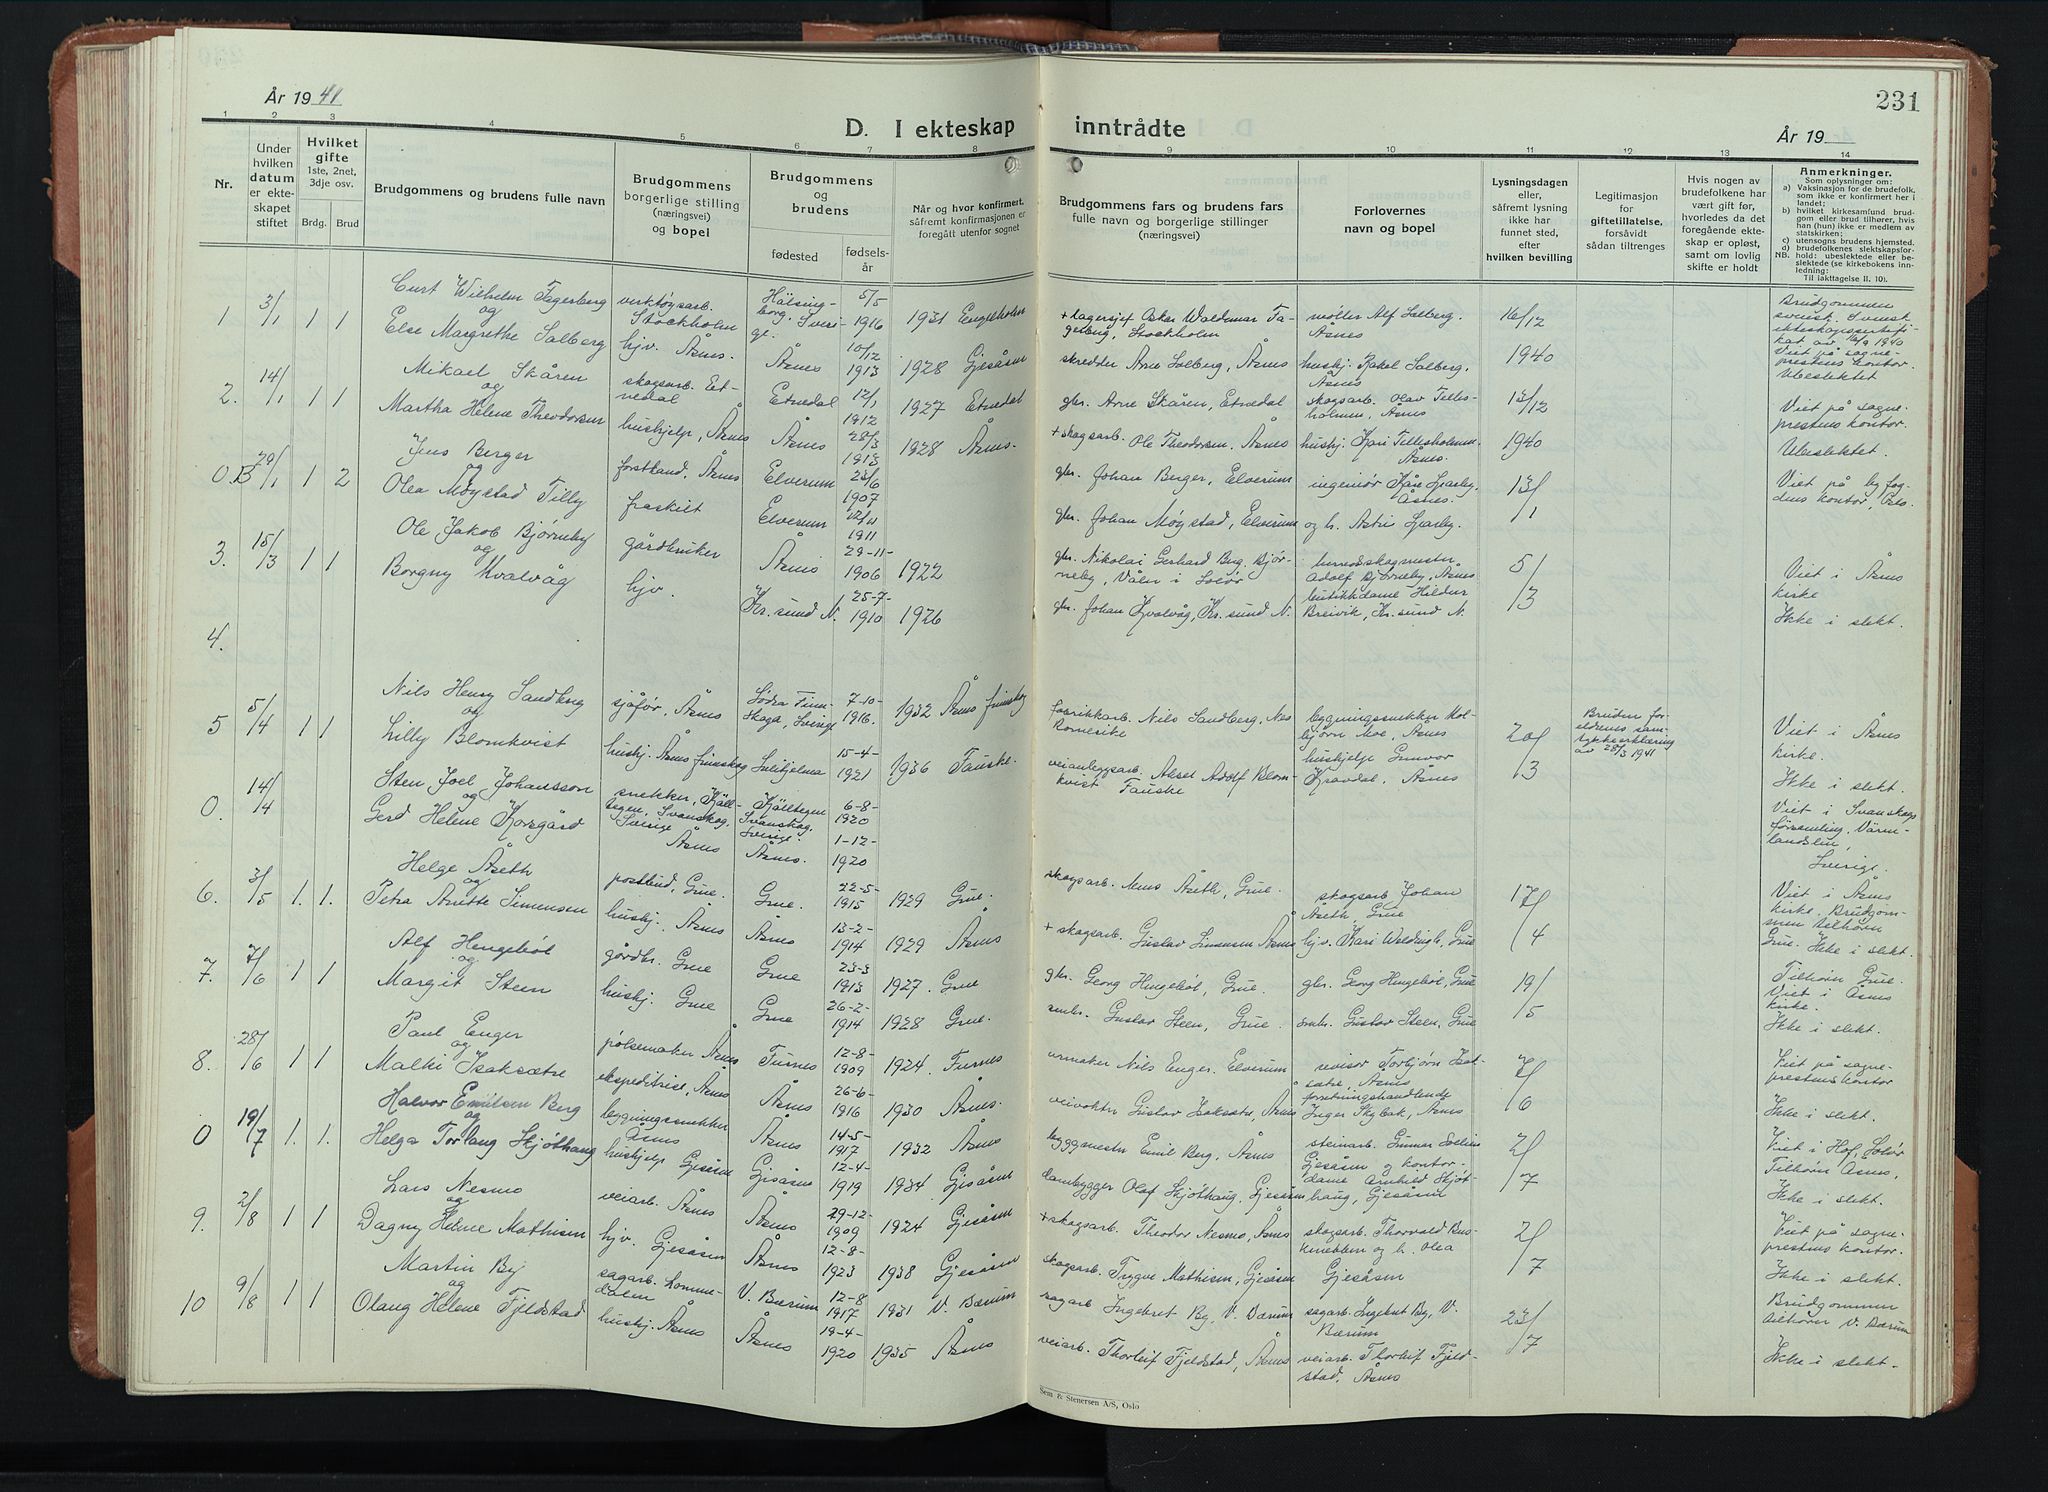 År 1941
231
D. I ekteskap inntrådte
År 19
1 2 3 4 5 6 7 8 9 10 11 12 13 14
Nr.
Under hvilken datum er ekteskapet stiftet
Hvilket gifte 1ste, 2net, 3dje osv.
Brdg. Brud
Brudgommens og brudens fulle navn
Brudgommens borgerlige stilling (næringsvei) og bopel
Brudgommens og brudens
fødested
fødsels-år
Når og hvor konfirmert, såfremt konfirmasjonen er foregått utenfor sognet
Brudgommens fars og brudens fars fulle navn og borgerlige stillinger (næringsvei)
Forlovernes navn og bopel
Lysningsdagen eller, såfremt lysning ikke har funnet sted, efter hvilken bevilling
Legitimasjon for giftetillatelse, forsåvidt sådan tiltrenges
Hvis nogen av brudefolkene har vært gift før, hvorledes da det foregående ekteskap er opløst, samt om lovlig skifte er holdt
Anmerkninger.
Som oplysninger om:
a) Vaksinasjon for de brudefolk, som ikke er konfirmert her i landet;
b) hvilket kirkesamfund brudgom eller brud tilhører, hvis han (hun) ikke er medlem av statskirken;
c) utensogns brudens hjemsted.
d) brudefolkenes slektskapsforhold: ubeslektede eller beslektede (se kirkebokens innledning:
NB.
Til iakttagelse II. 10).
1 3/1 1 1
Curt Wilhelm Fagerberg
og
Else Margrethe Solberg
verktøysarb. Stockholm
hjv. Åsnes.
Hälsingborg. Sverige.
5/5 1916
Åsnes 10/12 1913
1931 Engelholm
1928 Gjesåsen
+ lagersjef Oskar Waldemar Fagerberg, Stockholm
skredder Arne Solberg, Åsnes
møller Alf Solberg. Åsnes
hushj. Rakel Solberg. Åsnes
16/12 1940
Brudgommen svensk. Svensk ekteskapssertifikat av 16/9 1940
Viet på sogneprestens kontor.
Ubeslektet
2. 14/1 1 1
Mikael Skåren
og
Martha Helene Theodorsen
skogsarb. Etnedal
hushjelp, Åsnes
Etnedal 12/1 1912
Åsnes 28/3 1913
1927 Etnedal
1928 Åsnes.
gbr. Arne Skåren, Etnedal
+ skogsarb. Ole Theodorsen. Åsnes
skogsarb. Olav Tellesholmen, Åsnes
hushj. Kari Tellesholmen Åsnes.
13/12 1940
Viet på sogneprestens kontor.
Ubeslektet.
0.B 29/1 1 2
Jens Berger
og
Olea Møystad Tilly
forstkand. Åsnes
fraskilt
Elverum 23/6 1907
Elverum 12/11 1911
gbr. Johan Berger, Elverum
gbr. Johan Møystad, Elverum
ingeniør Kåre Gjærby. Åsnes.
og h. Astri Gjærby.
13/1
Viet på byfogdens kontor, Oslo
3. 15/3 1 1
Ole Jakob Bjørneby
og
Borgny Kvalvåg
gårdbruker
hjv.
Åsnes 29-11-1906
Kr.sund N. 25-7-1910
1922
1926
gbr. Nikolai Gerhard Berg Bjørneby, Våler i Solør
gbr. Johan Kvalvåg, Kr.sund N.
herredskogmester Adolf Bjørneby, Åsnes
butikkdame Hildur Breivik, Kr.sund N.
5/3
Viet i Åsnes kirke
Ikke i slekt.
4.
5 5/4 1 1
Nils Henry Sandberg
og
Lilly Blomkvist
sjåfør, Åsnes
hushj. Åsnes finnskog
Södra Finnskoga, Sverige 7-10-1916.
Sulitjelma 15-4-1921
1932 Åsnes finnskog
1936 Fauske.
fabrikkarb. Nils Sandberg, Nes Romerike
veianleggsarb. Aksel Adolf Blomkvist Fauske
bygningssnekker Kolbjørn Moe, Åsnes
hushjelp Gunvor Kravdal, Åsnes
20/3
Bruden foreldrenes samtykkeerklæring av 28/3 1941
Viet i Åsnes kirke.
Ikke i slekt.
0. 14/4
Sten Joel Johansson
og
Gerd Helene Korsgård
snekker, Källtegen, Svanskog, Sverige
Åsnes
Källtegen Svanskog, Sverige. 6-8-1920
Åsnes. 1-12-1920
Viet i Svanskogs församling, Värmlandslän, Sverige.
6. 3/5 1. 1.
Helge Åseth
og
Petra Anette Simensen
postbud, Grue.
hushj. Åsnes
Grue. 22-5-1915
Åsnes 13-2-1914
1929 Grue.
1929 Åsnes
skogsarb. Arne Åseth, Grue.
+ skogsarb. Gustav Simensen Åsnes
skogsarb Johan Åseth, Grue
hjv. Kari Weldingh, Grue
17/4
Viet i Åsnes kirke. Brudgommen tilhører Grue. Ikke i slekt.
7. 7/6 1 1
Alf Hengebøl
og
Margit Steen
gårdbr. Grue
hushj. Grue
Grue 23-3-1913
Grue 26-2-1914
1927. Grue
1928 Grue.
gbr. Georg Hengebøl, Grue.
småbr. Gustav Steen, Grue.
gbr. Georg Hengebøl, Grue
småbr. Gustav Steen, Grue
19/5
Tilhører Grue. Viet i Åsnes kirke.
Ikke i slekt.
8. 28/6 1 1
Paul Enger
og
Malki Isaksætre
pølsemaker, Åsnes
ekspeditrise, Åsnes
Furnes 12-8-1909
Åsnes 26-6-1916
1924. Furnes
1930 Åsnes.
urmaker Nils Enger. Elverum
veivokter Gustav Isaksætre, Åsnes
revisor Torbjørn Isaksætre, Åsnes
forretningshandlende Inger Skybak, Åsnes
7/6
Viet på sogneprestens kontor
Ikke i slekt.
0 19/7 1. 1.
Halvor Emilsen Berg
og
Helga Torlaug Skjøthaug
bygningssnekker Åsnes
hushjelp Gjesåsen
Åsnes 14-5-1917
Gjesåsen 12-4-1919
1932 Åsnes
1934 Gjesåsen
byggmester Emil Berg, Åsnes
dambygger Olaf Skjøthaug, Gjesåsen
steinarb. Gunnar Sælien Gjesåsen og kontordame Arnhild Skjøthaug, Gjesåsen
2/7
Viet i Hof, Solør
Tilhører Åsnes,
Ikke i slekt.
9. 2/8 1 1
Lars Nesmo
og
Dagny Helene Mathisen
veiarb. Åsnes
hjv. Gjesåsen
Åsnes 29-12-1909
Åsnes 12-8-1923
1924 Gjesåsen
1938 Gjesåsen
+ skogsarb. Theodor Nesmo, Åsnes
skogsarb. Trygve Mathisen, Gjesåsen
skogsarb. Thorvald Buskenebben og h. Olea Gjesåsen
2/7
Viet på sogneprestens kontor.
Ikke i slekt.
10 9/8 1 1
Martin By
og
Olaug Helene Fjeldstad
sagarb. Lommedalen
hushj. Åsnes
V. Bærum 12-8 1917
Åsnes 19-4-1920
1931 V. Bærum
1935 Åsnes
sagarb Ingebret By, V. Bærum
veiarb. Thorleif Fjeldstad, Åsnes
sagarb. Ingebret By, V. Bærum
veiarb. Thorleif Fjeldstad, Åsnes
23/7
Brudgommen tilhører V. Bærum
Ikke i slekt.
Sem & Stenersen A/S, Oslo